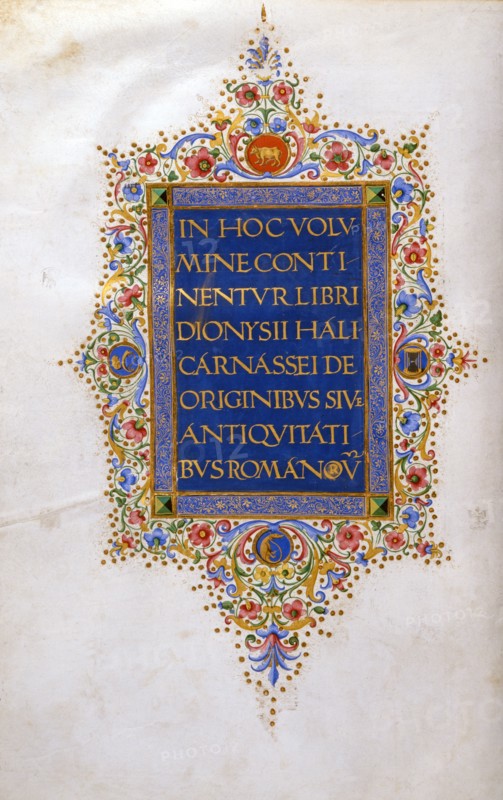 IN HOC VOLV
MINE CONTI
NENTVR LIBRI
DIONYSII HALI
CARNASSEI DE
ORIGINIBVS SIVE
ANTIQVITATI
BVS ROMANOꝜV̅